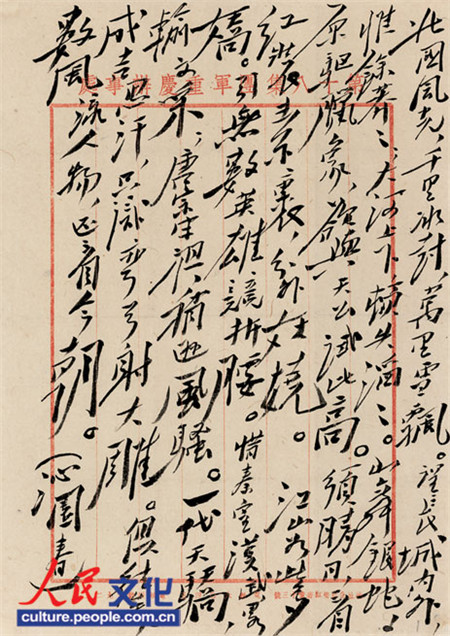 第十八集團軍重慶辦事處
北國風光,千里冰封,萬里雪飄。望長城內外,
惟餘莽〻;大河上下,頓失滔〻。山舞銀蛇,
原驅臘象,欲與天公試比高。須晴日,看
紅裝素裹,分外妖嬈。 江山如此多
嬌,引無數英雄競折腰。惜秦皇漢武,略
輸文采;唐宗宋祖,稍遜風騷。一代天驕,
成吉思汗,只識彎弓射大雕。俱往矣,
數風流人物,還看今朝。(沁園春)
人民文化
culture.people.com.cn